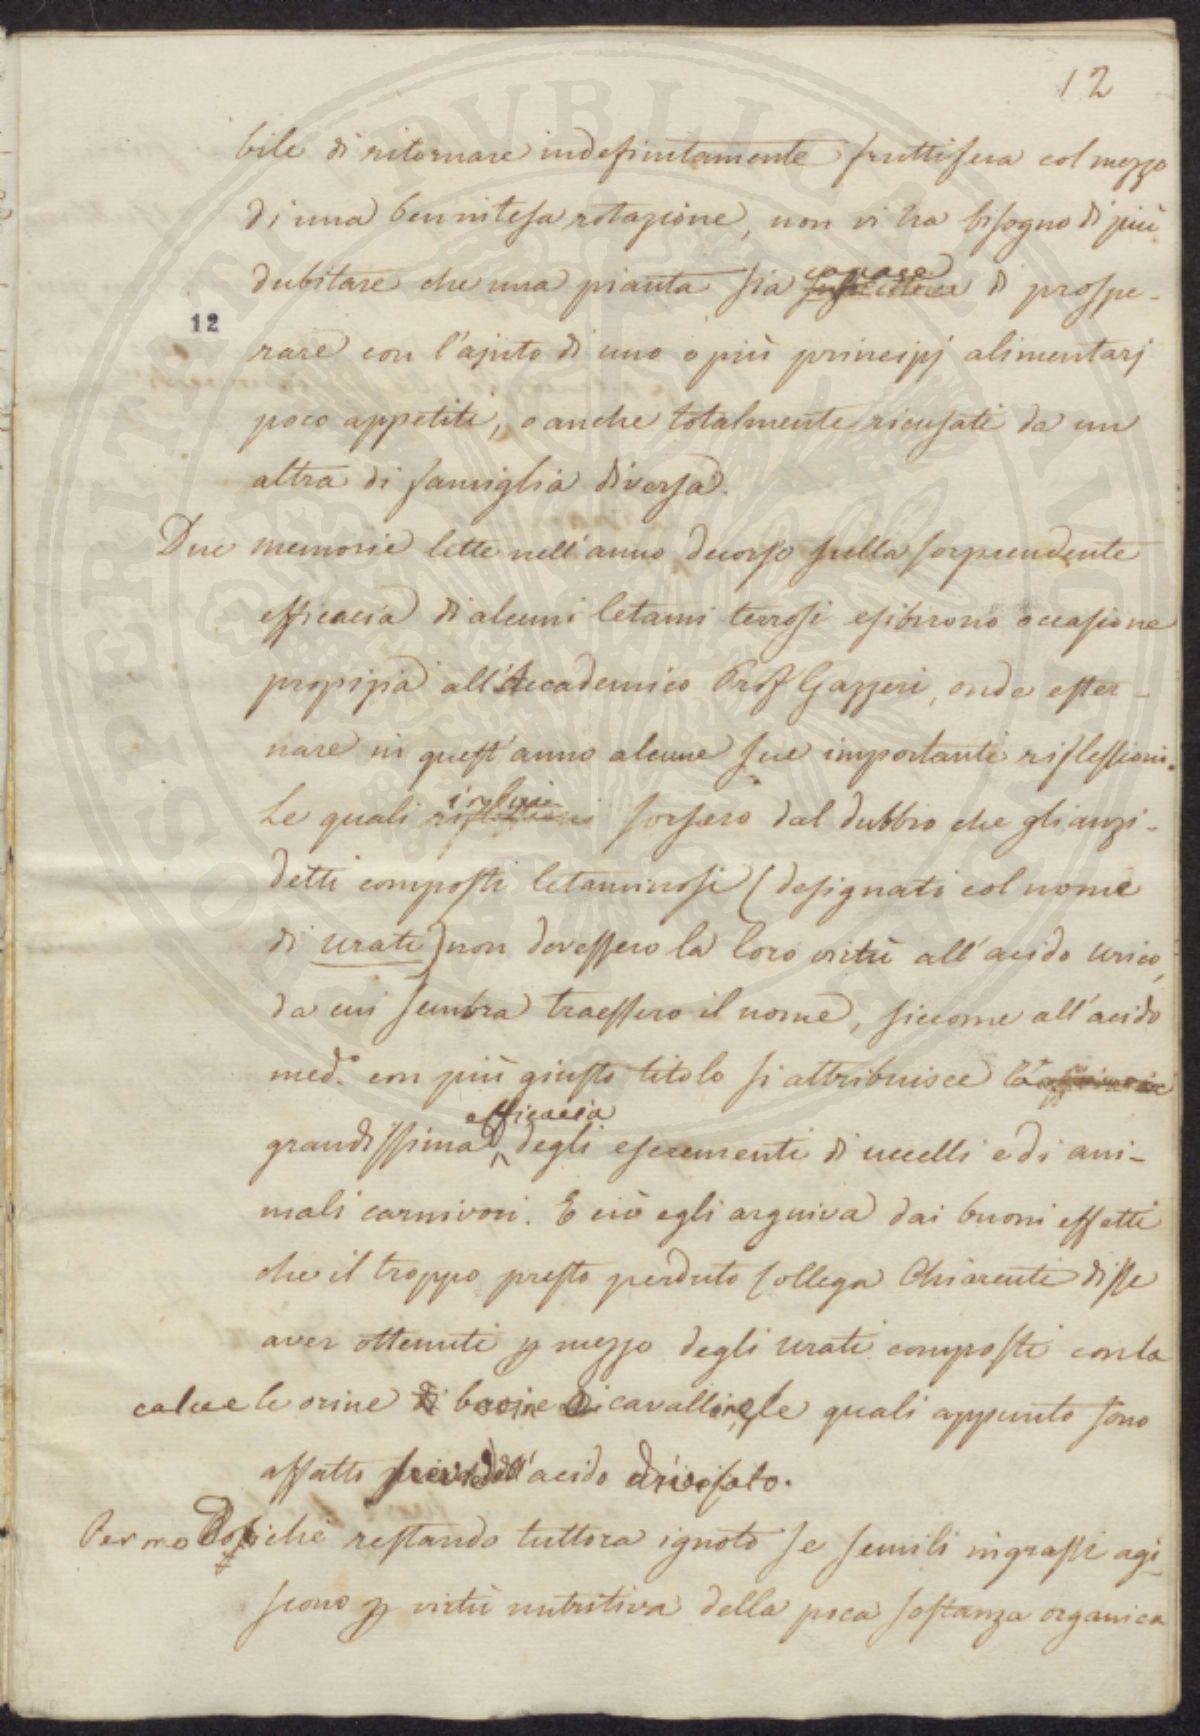 12
bile di ritornare indefinitamente fruttifera col mezzo
di una benintesa rotazione, non vi ha bisogno di più
dubitare che una pianta sia capace di prospe-
12
rare con l'ajuto di uno o più principj alimentarj
poco appetiti, o anche totalmente ricusati da un
altra di famiglia diversa.
Due memorie lette nell'anno decorso sulla sorprendente
efficacia di alcuni letami terrosi esibirono occasione
propizia all'Accademico Prof Gazzeri, onde ester-
nare in quest'anno alcune sue importanti riflessioni.
Le quali sorsero dal dubbio che gli anzi-
detti composti letaminosi (designati col nome
di urati) non dovessero la loro virtù all'acido urico,
da cui sembra traessero il nome, siccome all'acido
med.o con più giusto titolo si attribuisce la
efficacia
grandissima degli escrementi di uccelli e di ani-
mali carnivori. E ciò egli arguiva dai buoni effetti
che il troppo presto perduto collega Chiarenti disse
aver ottenuti p mezzo degli urati composti con la
calce e le orine bovine cavalline, le quali appunto sono
affatto prive dell'acido
Per mo Dosichè restando tuttora ignoto se simili ingrassi agi-
scono p virtù nutritiva della poca sostanza organica